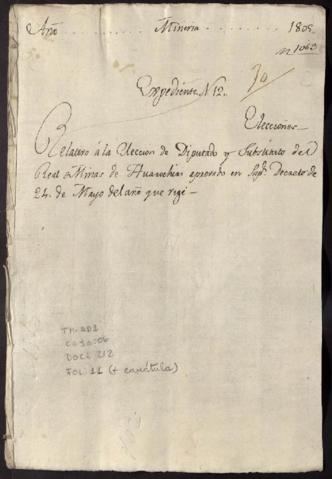 Año . . . . . . . . Mineria . . . . . . . . 1808.
nº 1063
Expediente Nº 12.
Elecciones
Relativo á la Eleccion de Diputado y Substituto del
Real Minas de aprovado en Supr. Decreto de
24. de Mayo del año que rige –
TM-AD1
CAJA: 06
DOC: 212
FOL: 11 (+ carátula)